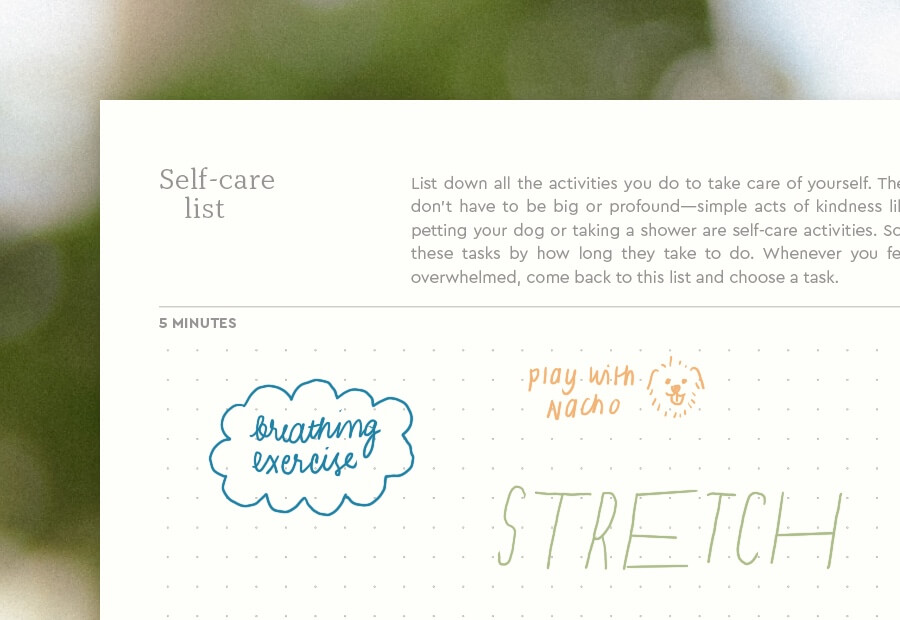 Self-care
list
List down all the activities you do to take care of yourself. The
don't have to be big or profound—simple acts of kindness li
petting your dog or taking a shower are self-care activities. So
these tasks by how long they take to do. Whenever you fe
overwhelmed, come back to this list and choose a task.
5 MINUTES
play with
Nacho
breathing
exercise
STRETCH